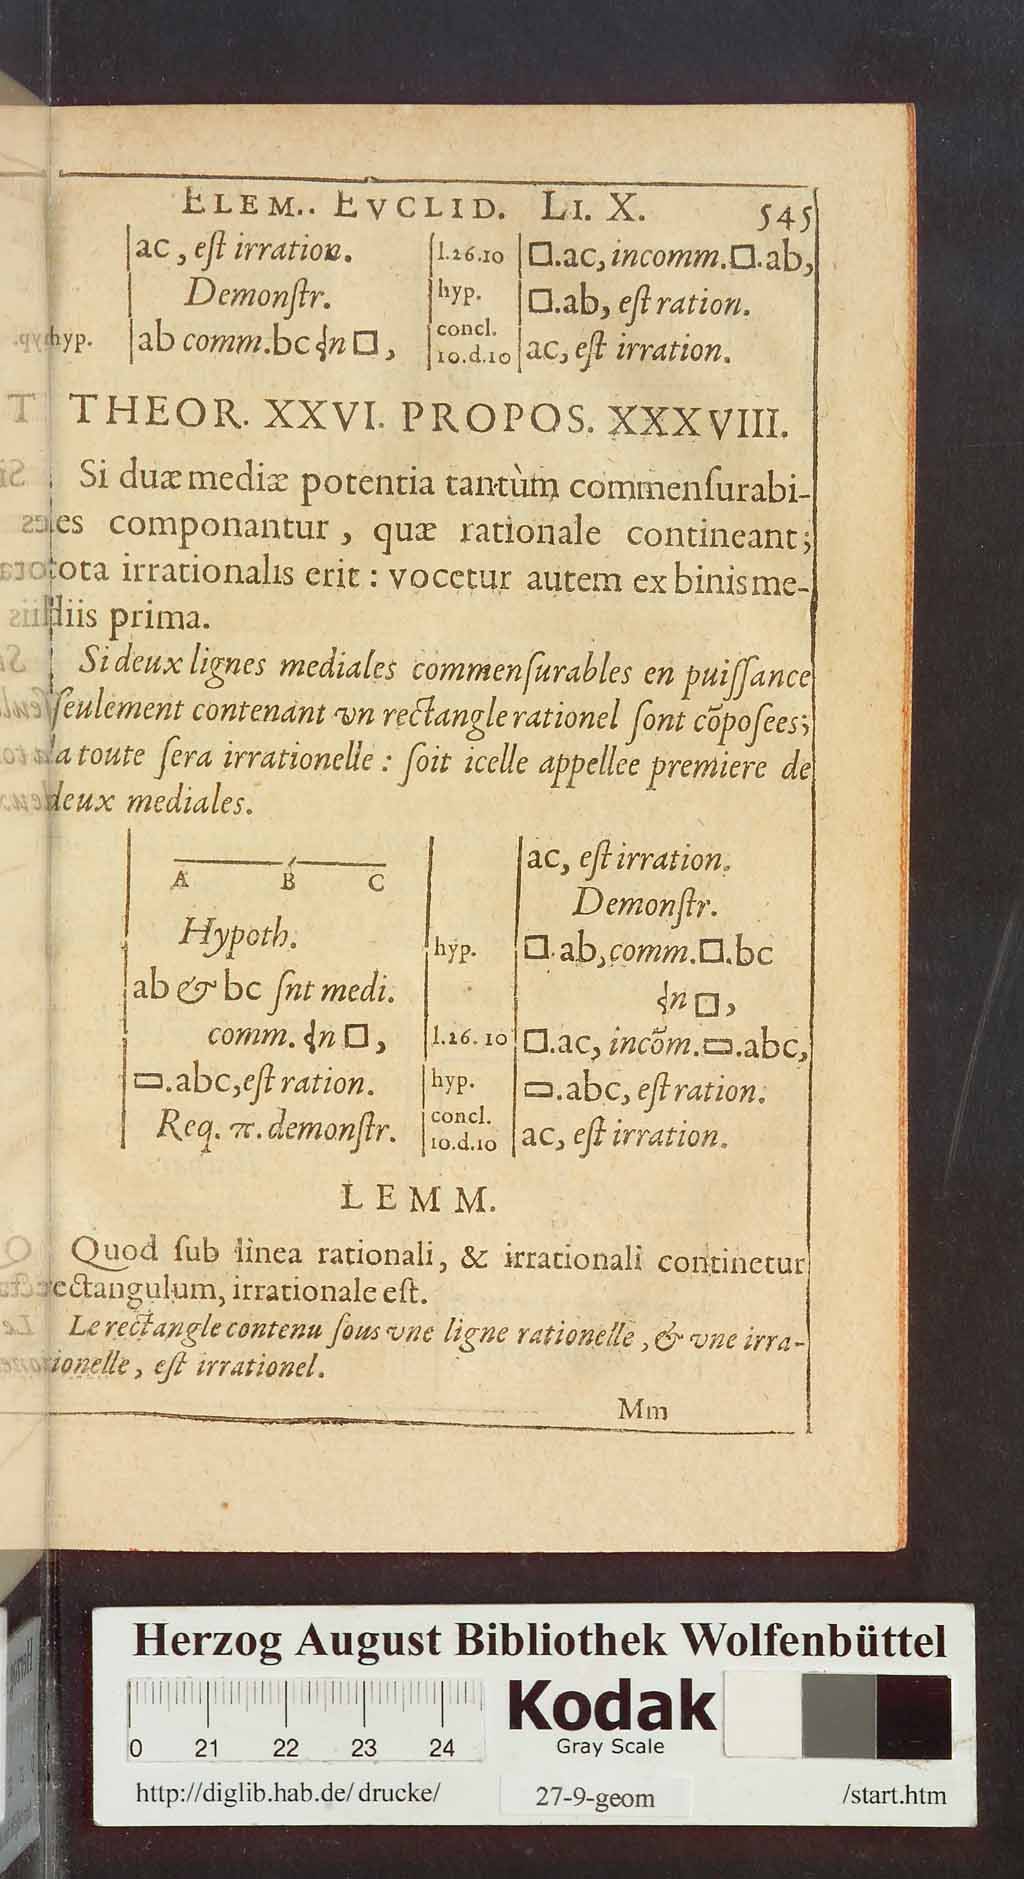 ELEM.. EVCLID. LI. X. 545
ac, eſt irration.
Demonſtr.
hyp. ab comm. bc ⸠n □,
1.26.10 □.ac, incomm. □.ab,
hyp. □.ab, eſt ration.
concl.
10.d.10 ac, eſt irration.
THEOR. XXVI. PROPOS. XXXVIII.
Si duæ mediæ potentia tantùm commenſurabi-
les componantur, quæ rationale contineant;
tota irrationalis erit : vocetur autem ex binis me-
diis prima.
Si deux lignes mediales commenſurables en puiſſance
ſeulement contenant vn rectangle rationel ſont cõpoſees;
la toute ſera irrationelle : ſoit icelle appellee premiere de
deux mediales.
A B C
Hypoth.
ab & bc ſnt medi.
comm. ⸠n □,
▭.abc, eſt ration.
Req. π. demonſtr.
ac, eſt irration.
Demonſtr.
hyp. □.ab, comm. □.bc
⸠n □,
1.26.10 □.ac, incõm. ▭.abc,
hyp. ▭.abc, eſt ration.
concl.
10.d.10 ac, eſt irration.
LEMM.
Quod ſub linea rationali, & irrationali continetur
rectangulum, irrationale eſt.
Le rectangle contenu ſous vne ligne rationelle, & vne irra-
tionelle, eſt irrationel.
Mm
Herzog August Bibliothek Wolfenbüttel
0 21 22 23 24
Kodak
Gray Scale
http://diglib.hab.de/drucke/ 27-9-geom /start.htm